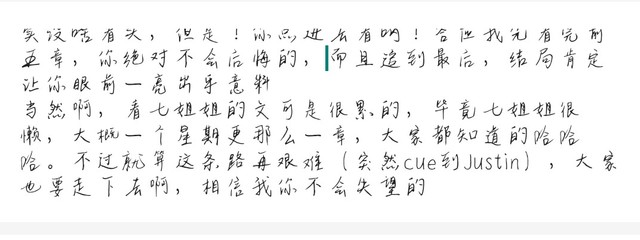 实没啥有大，但是！你点进去有啊！合但我先有完前
五章，你绝对不会后悔的，而且追到最后，结局肯定
让你眼前一亮出乎意料
当然啊，看七姐姐的文可是很累的，毕竟七姐姐很
懒，大概一个星期更那么一章，大家都知道的哈哈
哈。不过就算这条路再艰难（突然cue到Justin），大家
也要走下去啊，相信我你不会失望的